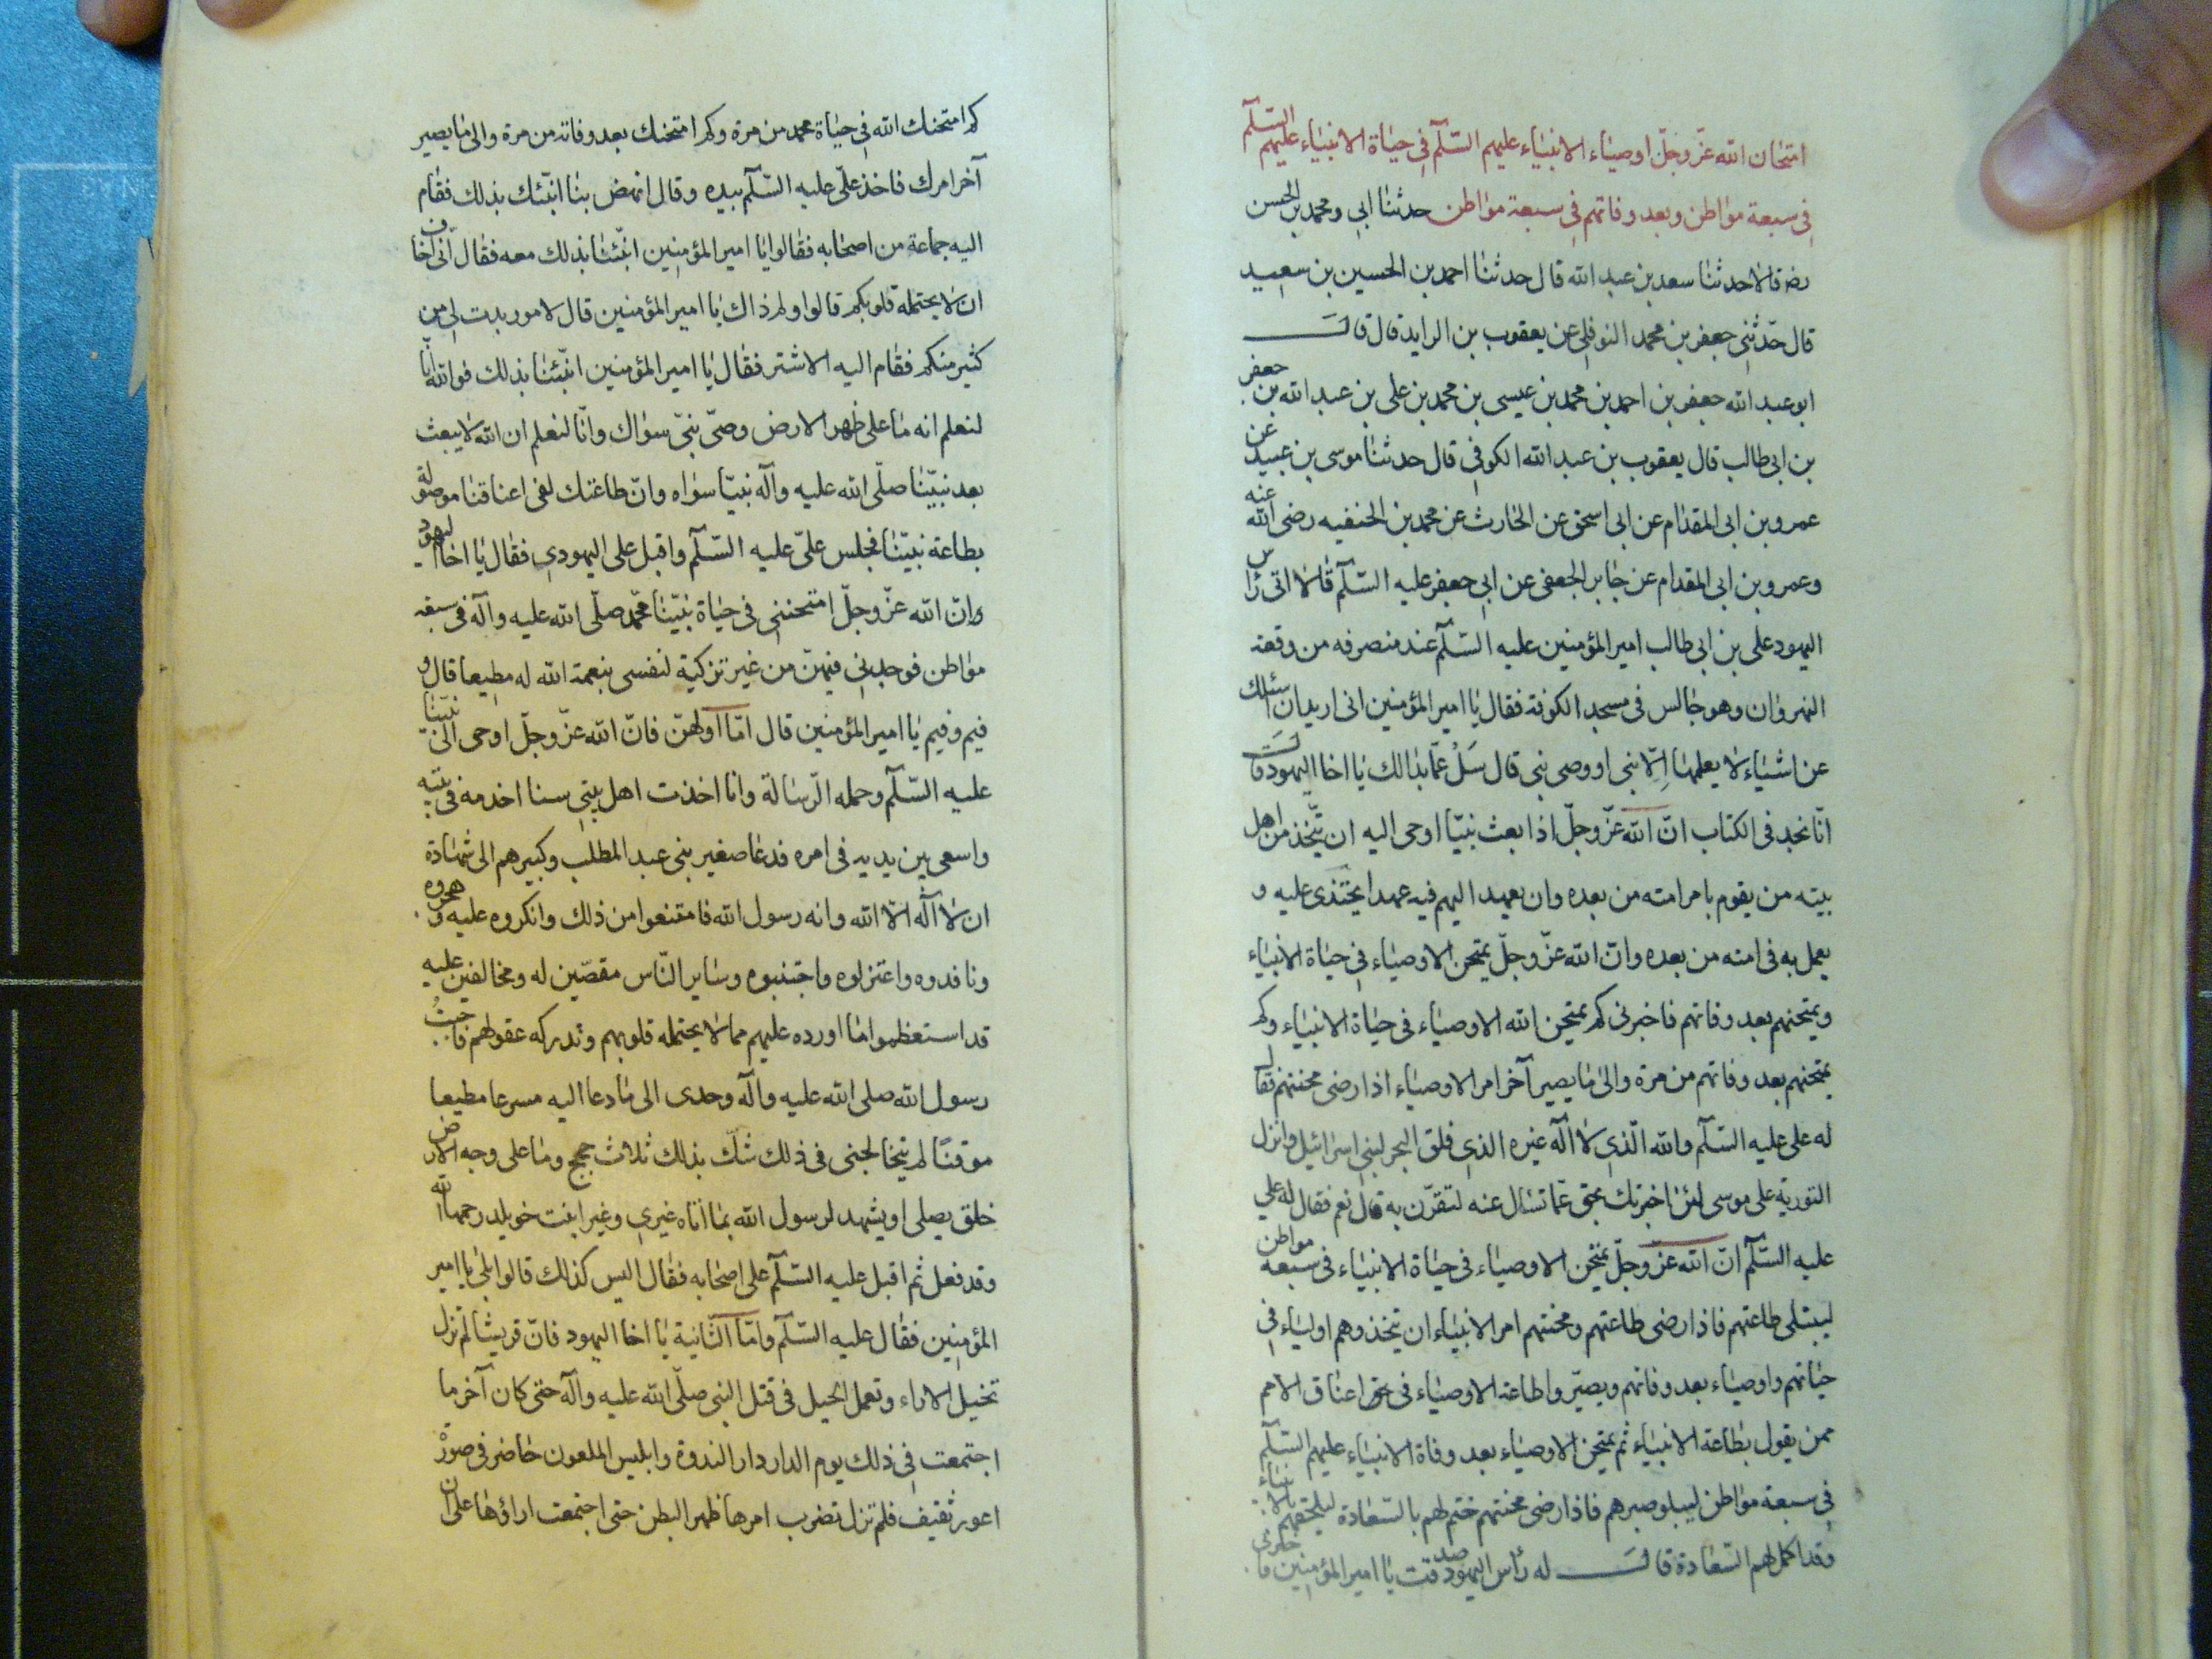 امتحان الله عزّ وجلّ اوصياء الانبياء عليهم السّلام في حياة الانبياء عليهم السّلام
في سبعة مواطن وبعد وفاتهم في سبعة مواطن حدثنا ابي ومحمد بن الحسن
رضه قالا حدثنا سعد بن عبد الله قال حدثنا احمد بن الحسين بن سعيد
قال حدّثني جعفر بن محمد النوفلي عن يعقوب بن الرايد قال قال
ابو عبد الله جعفر بن احمد بن محمد بن عيسى بن محمد بن على بن عبد الله بن جعفر
بن ابي طالب قال يعقوب بن عبد الله الكوفي قال حدثنا موسى بن عبيد عن
عمرو بن ابي المقدام عن ابي اسحق عن الحارث عن محمد بن الحنفيه رضى الله عنه
وعمرو بن ابي المقدام عن جابر الجعفى عن ابي جعفر عليه السّلام قالا اتى رأس
اليهود على بن ابي طالب امير المؤمنين عليه السّلام عند منصرفه من وقعة
النهروان وهو جالس في مسجد الكوفة فقال يا امير المؤمنين انى اريد ان اسئلك
عن اشياء لا يعلمها الّا نبي او وصى نبى قال سَلْ عمّا بدا لك يا اخا اليهود قال
انّا نجد فى الكتاب انّ الله عزّ وجلّ اذا بعث نبيّا اوحى اليه ان يتّخذ من اهل
بيته من يقوم بامر امته من بعده وان يعهد اليهم فيه عهدا يحتذى عليه و
يعمل به فى امته من بعده وانّ الله عزّ وجلّ يمتحن الاوصياء في حياة الانبياء
ويمتحنهم بعد وفاتهم فاخبرنى كم يمتحن الله الاوصياء فى حياة الانبياء وكم
يمتحنهم بعد وفاتهم من مرة والى ما يصير آخر امر الاوصياء اذا رضى محنتهم فقال
له على عليه السّلام والله الّذي لا اله غيره الذي فلق البحر لبنى اسرائيل وانزل
التورية على موسى لئن اخبرتك بحق عمّا تسئل عنه لتقرّن به قال نعم فقال له علي
عليه السّلام انّ الله عزّ وجلّ يمتحن الاوصياء فى حياة الانبياء فى سبعة مواطن
ليبتلى طاعتهم فاذا رضى طاعتهم ومحنتهم امر الانبياء ان يتخذوهم اولياء في
حياتهم واوصياء بعد وفاتهم ويصيّر واطاعة الاوصياء فى اعناق الامم
ممن يقول بطاعة الانبياء ثم يمتحن الاوصياء بعد وفاة الانبياء عليهم السّلام
في سبعة مواطن ليبلو صبرهم فاذا رضى محنتهم ختم لهم بالسّعادة ليلحقهم بالانبياء
وقد اكمل لهم السّعادة قال له رأس اليهود صدقت يا امير المؤمنين فاخبرنى
كم امتحنك الله في حياة محمد من مرة وكم امتحنك بعد وفاته من مرة والى ما يصير
آخر امرك فاخذ علىّ عليه السّلام بيده وقال انهض بنا انبّئك بذلك فقام
اليه جماعة من اصحابه فقالوا يا امير المؤمنين انبّئنا بذلك معه فقال انّى اخاف
ان لا يحتمله قلوبكم قالوا ولم ذاك يا امير المؤمنين قال لامور بدت لى من
كثير منكم فقام اليه الاشتر فقال يا امير المؤمنين انبّئنا بذلك فوالله انّا
لنعلم انه ما على ظهر الارض وصىّ نبيّ سواك وانّا لنعلم ان الله لا يبعث
بعد نبيّنا صلّى الله عليه وآله نبيّا سواه وانّ طاعتك لفى اعناقنا موصولة
بطاعة نبيّنا فجلس علىّ عليه السّلام واقبل على اليهودي فقال يا اخا اليهود
وانّ الله عزّ وجلّ امتحننى فى حياة نبيّنا محمّد صلّى الله عليه وآله فى سبعة
مواطن فوجدني فيهنّ من غير تزكية لنفسى بنعمة الله له مطيعا قال و
فيم وفيم يا امير المؤمنين قال امّا اولهنّ فانّ الله عزّ وجلّ اوحى الى نبيّنا
عليه السّلام وحمله الرّسالة وانا احدث اهل بيتي سنا اخدمه فى بيته
واسعى بين يديه فى امره فدعا صغير بنى عبد المطلب وكبيرهم الى شهادة
ان لا اله الّا الله وانه رسول الله فامتنعوا من ذلك وانكروه عليه وهجروه
ونافدوه واعتزلوه واجتنبوه وساير النّاس مقصّين له ومخالفين عليه
قد استعظموا ما اورده عليهم مما لا يحتمله قلوبهم وتدركه عقولهم فاجبتُ
رسول الله صلى الله عليه وآله وحدى الى ما دعا اليه مسرعا مطيعا
موقنًا لم يتخالجنى فى ذلك شكّ بذلك ثلاث حجج وما على وجه الارض
خلق يصلى او يشهد لرسول الله بما اتاه غيري وغير ابنت خويلد رحمها الله
وقد فعل ثم اقبل عليه السّلام على اصحابه فقال اليس كذلك قالوا بلى يا امير
المؤمنين فقال عليه السّلام وامّا الثّانية يا اخا اليهود فانّ قريشا لم تزل
تخيل الاراء وتعمل الحيل فى قتل النبى صلّى الله عليه وآله حتى كان آخر ما
اجتمعت في ذلك يوم الدار دار الندوة وابليس الملعون حاضر فى صورة
اعور ثقيف فلم تزل تضرب امرها ظهر البطن حتى اجتمعت اراؤها على ان